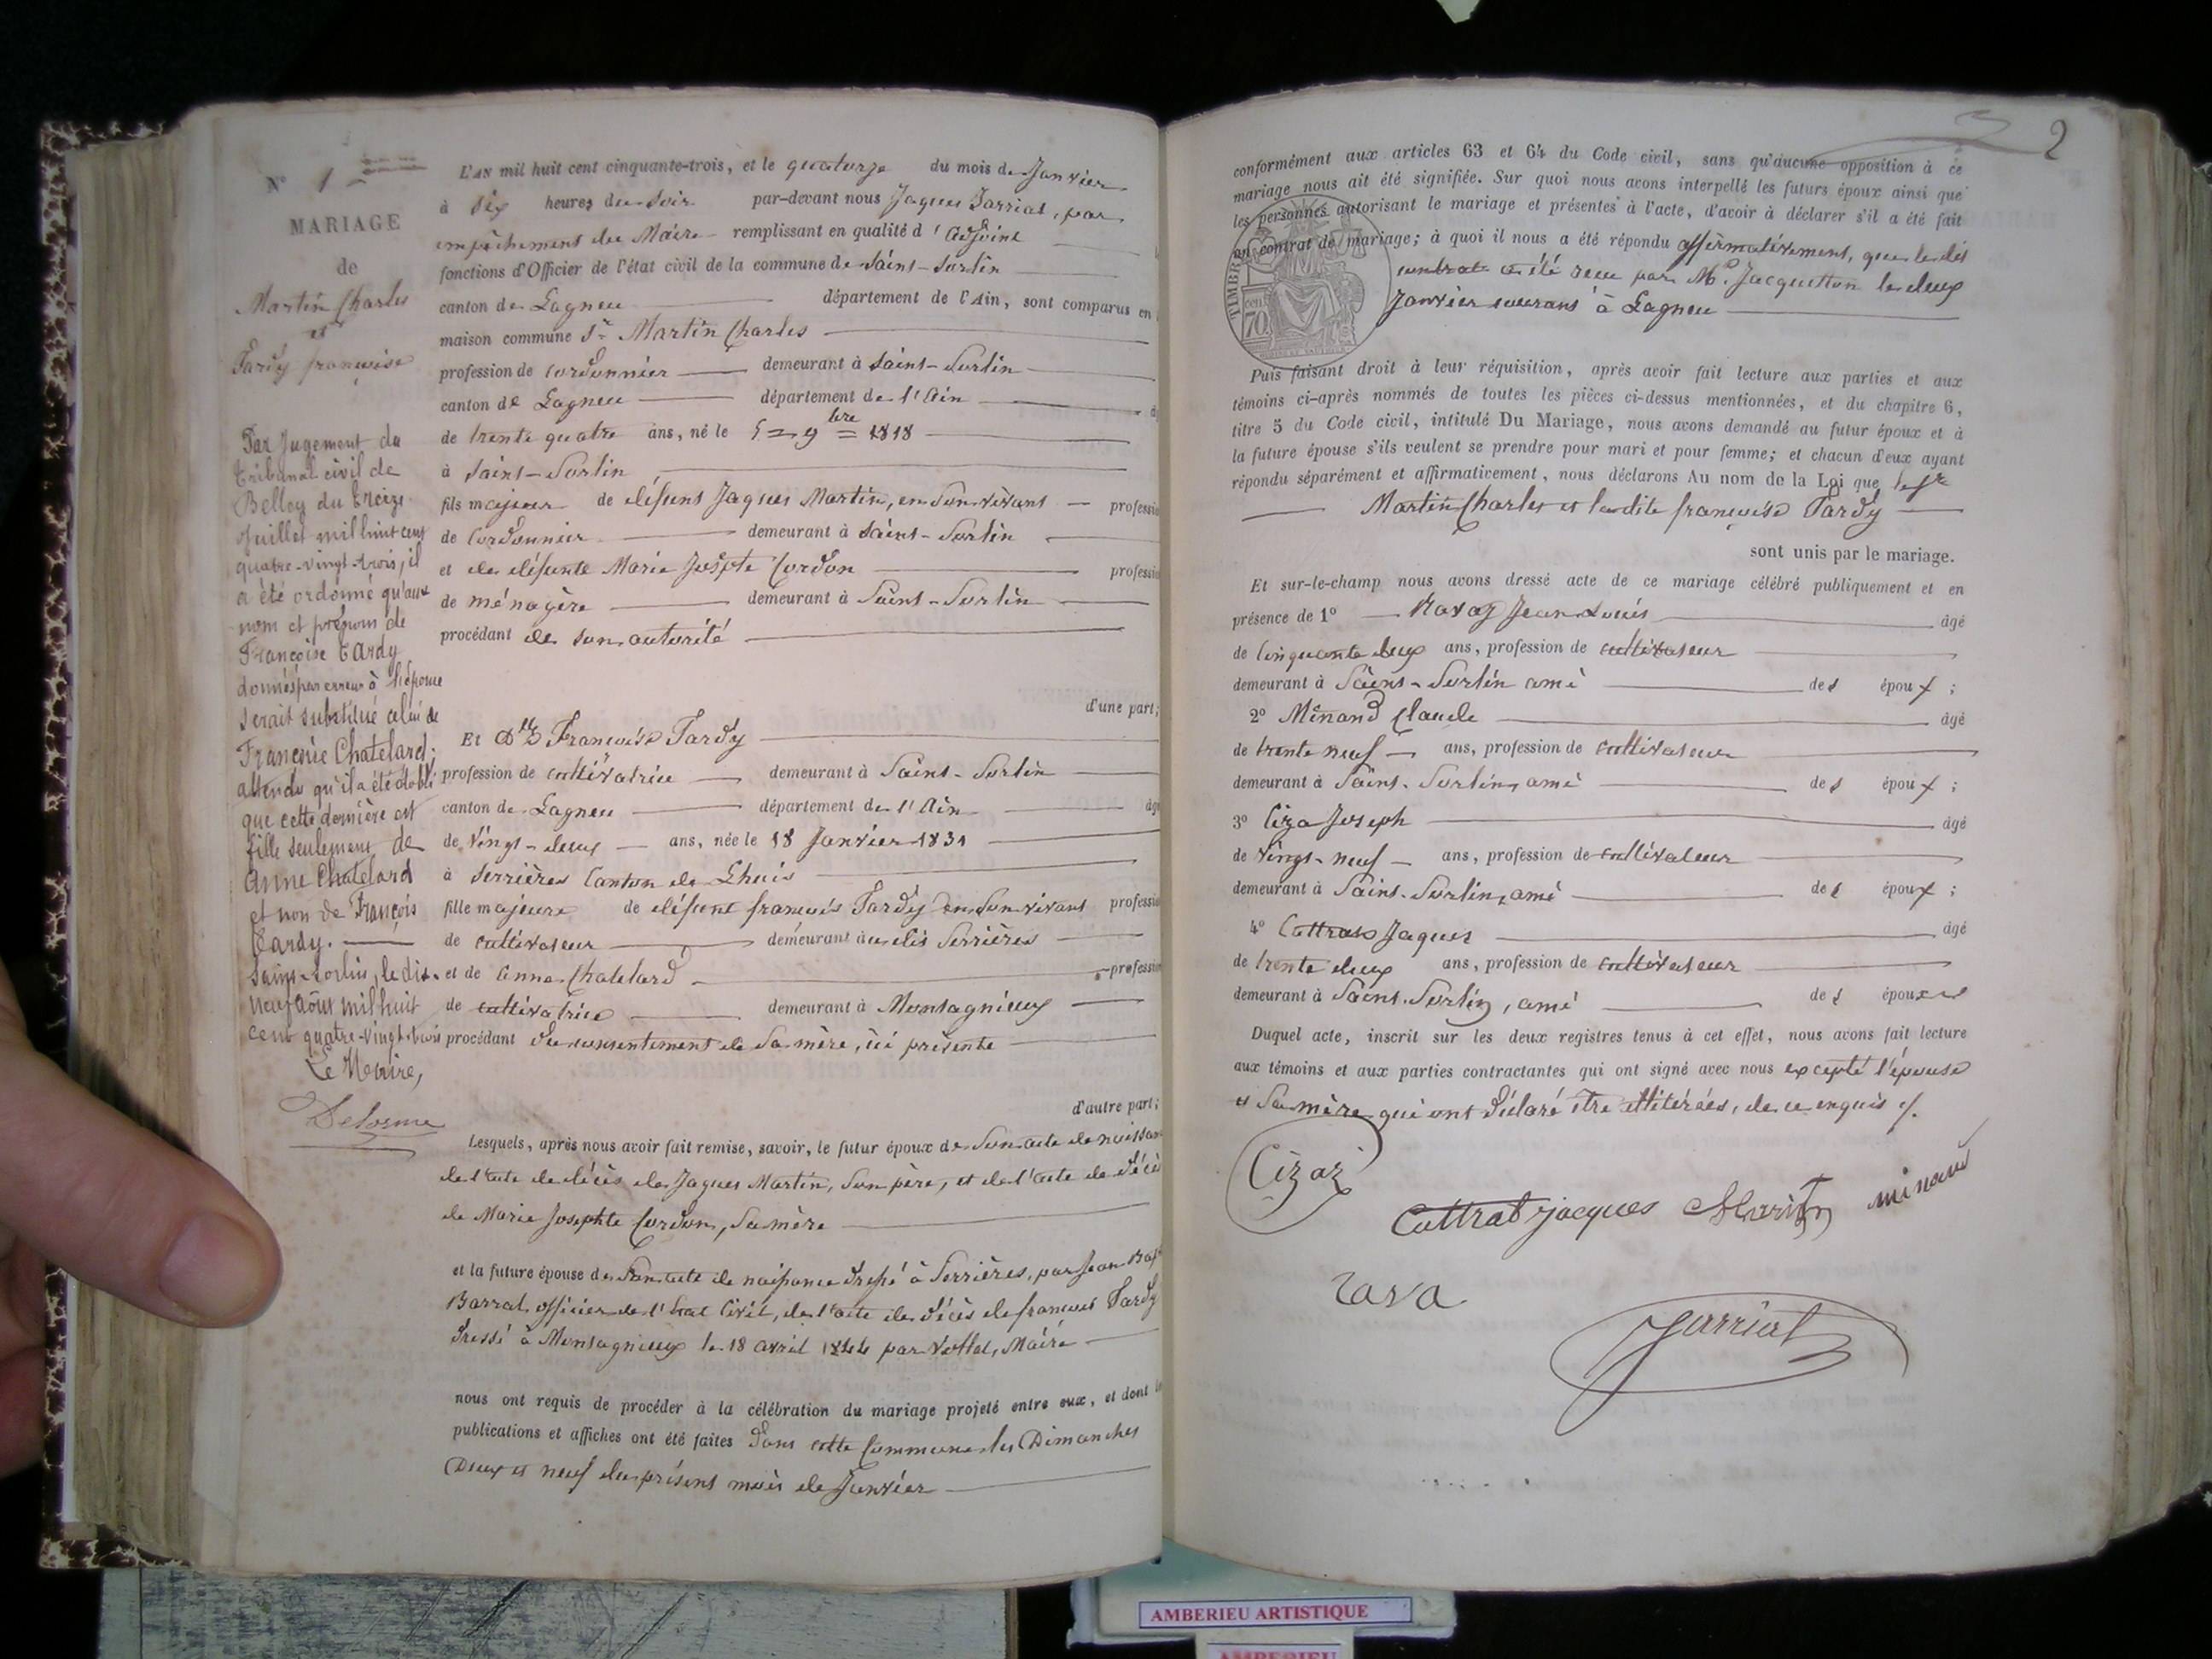 N° 1
MARIAGE
de
Martin Charles
et
Tardy françoise
Par Jugement du
tribunal civil de
Belley du treize
Juillet mil huit cent
quatre-vingt-trois, il
a été ordonné qu'aux
nom et prénom de
Françoise Tardy
donnés par erreur à l'épouse
serait substitué celui de
Françoise Chatelard;
attendu qu'il a été établi
que cette dernière est
fille seulement de
Anne Chatelard
et non de François
Tardy.
Saint-Sorlin, le dix-
neuf août mil huit
cent quatre-vingt-trois
Le Maire,
Delorme
L'AN mil huit cent cinquante-trois, et le quatorze du mois de Janvier
à six heures du soir par-devant nous Jaques Jarriat, par
empêchement du Maire remplissant en qualité d'adjoint
fonctions d'Officier de l'état civil de la commune de Saint-Sorlin
canton de Lagneu département de l'Ain, sont comparus en
maison commune Sr Martin Charles
profession de Cordonnier demeurant à Saint-Sorlin
canton de Lagneu département de l'Ain
de trente quatre ans, né le 5 = 9bre = 1818
à Saint-Sorlin
fils majeur de défunt Jaques Martin, en son vivant profession
de Cordonnier demeurant à Saint-Sorlin
et de défunte Marie Josepte Cordon profession
de ménagère demeurant à Saint-Sorlin
procédant de son autorité
d'une part;
Et Dlle Françoise Tardy
profession de cultivatrice demeurant à Saint-Sorlin
canton de Lagneu département de l'Ain âgé
de vingt-deux ans, née le 18 Janvier 1831
à Serrières Canton de Lhuis
fille majeure de défunt françois Tardy en son vivant profession
de cultivateur demeurant au dit Serrières
et de Anne Chatelard profession
de cultivatrice demeurant à Montagnieux
procédant du consentement de sa mère, ici présente
d'autre part;
Lesquels, après nous avoir fait remise, savoir, le futur époux de son acte de naissance
de l'acte de décès de Jaques Martin, son père, et de l'acte de décès
de Marie Josephte Cordon, sa mère
et la future épouse de son acte de naissance dressé à Serrières, par Jean Bapt
Barral officier de l'Etat Civil, de l'acte de décès de françois Tardy
dressé à Montagnieux le 18 avril 1844 par Vottet, Maire
nous ont requis de procéder à la célébration du mariage projeté entre eux, et dont
publications et affiches ont été faites dans cette Commune les Dimanches
Deux et neuf du présent mois de Janvier
2
conformément aux articles 63 et 64 du Code civil, sans qu'aucune opposition à ce
mariage nous ait été signifiée. Sur quoi nous avons interpellé les futurs époux ainsi que
les personnes autorisant le mariage et présentes à l'acte, d'avoir à déclarer s'il a été fait
un contrat de mariage; à quoi il nous a été répondu affirmativement, que le dit
contrat a été reçu par Me Jacquetton le deux
Janvier courant à Lagneu
TIMBRE
70
Puis faisant droit à leur réquisition, après avoir fait lecture aux parties et aux
témoins ci-après nommés de toutes les pièces ci-dessus mentionnées, et du chapitre 6,
titre 5 du Code civil, intitulé Du Mariage, nous avons demandé au futur époux et à
la future épouse s'ils veulent se prendre pour mari et pour femme; et chacun d'eux ayant
répondu séparément et affirmativement, nous déclarons Au nom de la Loi que le Sr
Martin Charles et la dite françoise Tardy
sont unis par le mariage.
Et sur-le-champ nous avons dressé acte de ce mariage célébré publiquement et en
présence de 1° Ravaz Jean Louis âgé
de Cinquante deux ans, profession de cultivateur
demeurant à Saint-Sorlin ami des époux;
2° Minand Claude âgé
de trente neuf ans, profession de cultivateur
demeurant à Saint-Sorlin, ami des époux;
3° Ciza Joseph âgé
de vingt-neuf ans, profession de cultivateur
demeurant à Saint-Sorlin, ami des époux;
4° Cottras Jaques âgé
de trente deux ans, profession de cultivateur
demeurant à Saint-Sorlin, ami des époux
Duquel acte, inscrit sur les deux registres tenus à cet effet, nous avons fait lecture
aux témoins et aux parties contractantes qui ont signé avec nous excepté l'épouse
et sa mère qui ont déclaré être illitérées, de ce enquis
Cizaz
Cattrat jacques Martin minand
rava
Jarriat
AMBERIEU ARTISTIQUE
AMBERIEU